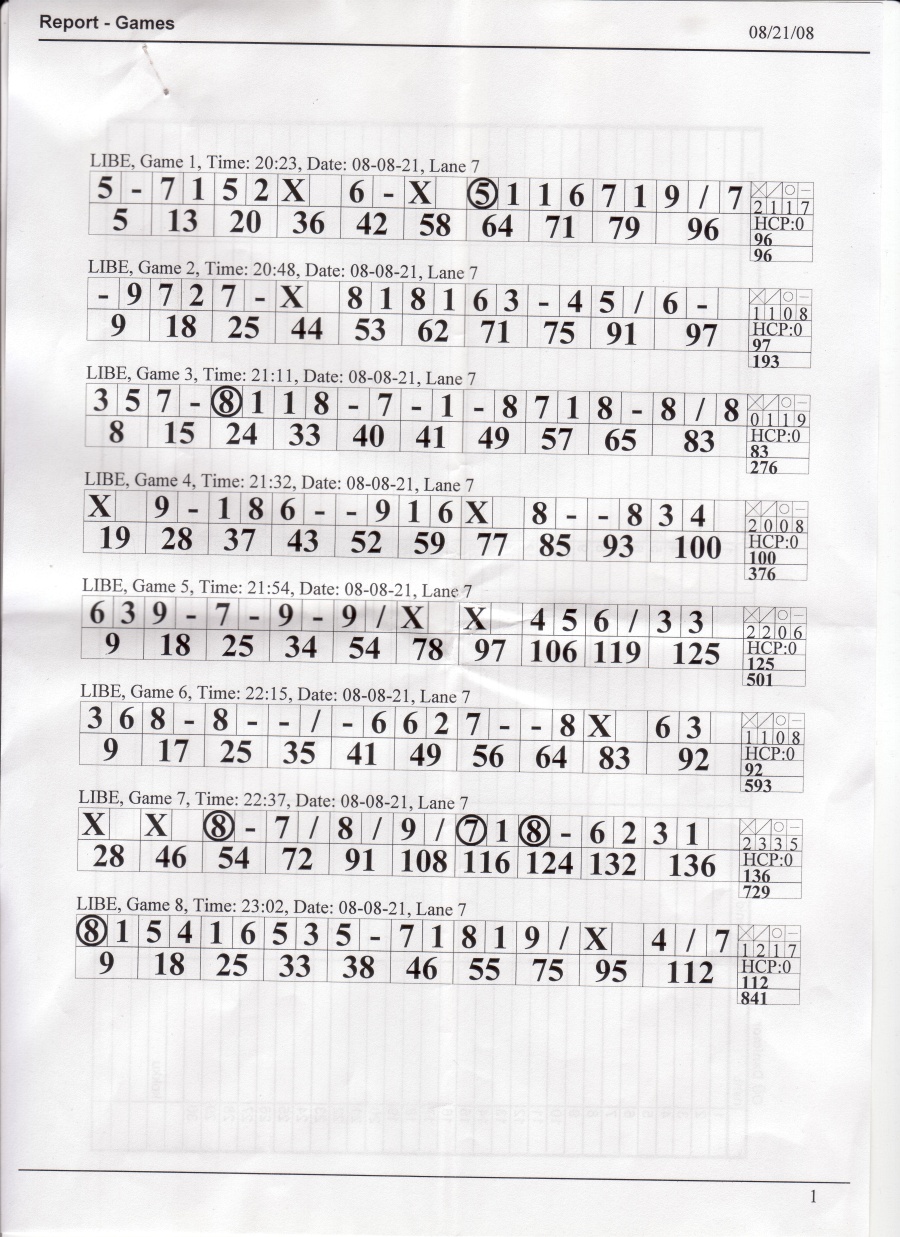 Report - Games
08/21/08
LIBE, Game 1, Time: 20:23, Date: 08-08-21, Lane 7
5 - 7 1 5 2 X 6 - X 5 1 1 6 7 1 9 / 7
5 13 20 36 42 58 64 71 79 96
2 1 1 7
HCP:0
96
96
LIBE, Game 2, Time: 20:48, Date: 08-08-21, Lane 7
- 9 7 2 7 - X 8 1 8 1 6 3 - 4 5 / 6 -
9 18 25 44 53 62 71 75 91 97
1 1 0 8
HCP:0
97
193
LIBE, Game 3, Time: 21:11, Date: 08-08-21, Lane 7
3 5 7 - 8 1 1 8 - 7 - 1 - 8 7 1 8 - 8 / 8
8 15 24 33 40 41 49 57 65 83
0 1 1 9
HCP:0
83
276
LIBE, Game 4, Time: 21:32, Date: 08-08-21, Lane 7
X 9 - 1 8 6 - - 9 1 6 X 8 - - 8 3 4
19 28 37 43 52 59 77 85 93 100
2 0 0 8
HCP:0
100
376
LIBE, Game 5, Time: 21:54, Date: 08-08-21, Lane 7
6 3 9 - 7 - 9 - 9 / X X 4 5 6 / 3 3
9 18 25 34 54 78 97 106 119 125
2 2 0 6
HCP:0
125
501
LIBE, Game 6, Time: 22:15, Date: 08-08-21, Lane 7
3 6 8 - 8 - - / - 6 6 2 7 - - 8 X 6 3
9 17 25 35 41 49 56 64 83 92
1 1 0 8
HCP:0
92
593
LIBE, Game 7, Time: 22:37, Date: 08-08-21, Lane 7
X X 8 - 7 / 8 / 9 / 7 1 8 - 6 2 3 1
28 46 54 72 91 108 116 124 132 136
2 3 3 5
HCP:0
136
729
LIBE, Game 8, Time: 23:02, Date: 08-08-21, Lane 7
8 1 5 4 1 6 5 3 5 - 7 1 8 1 9 / X 4 / 7
9 18 25 33 38 46 55 75 95 112
1 2 1 7
HCP:0
112
841
1